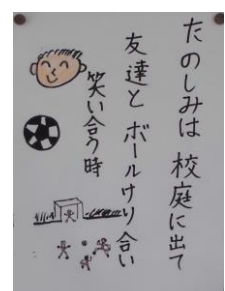 たのしみは 校庭に出て
友達と ボールけり合い
笑い合う時